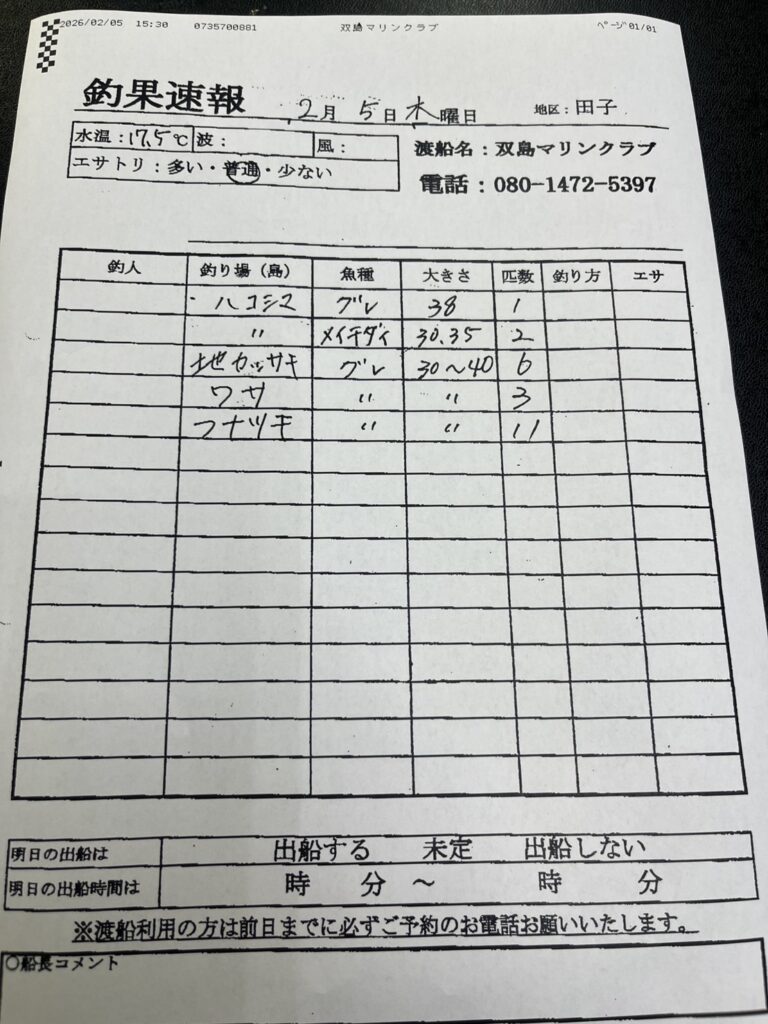 2026/02/05 15:30 0735700881 双島マリンクラブ ページ 01/01
釣果速報 2月 5日 木曜日 地区:田子
水温:17.5℃ 波: 風:
エサトリ:多い・普通・少ない
渡船名:双島マリンクラブ
電話:080-1472-5397
釣人 釣り場(島) 魚種 大きさ 匹数 釣り方 エサ
ハコシマ グレ 38 1
〃 メイチダイ 30.35 2
地カッサキ グレ 30〜40 6
ワサ 〃 〃 3
フナツキ 〃 〃 11
明日の出船は 出船する 未定 出船しない
明日の出船時間は 時 分 〜 時 分
※渡船利用の方は前日までに必ずご予約のお電話お願いいたします。
○船長コメント